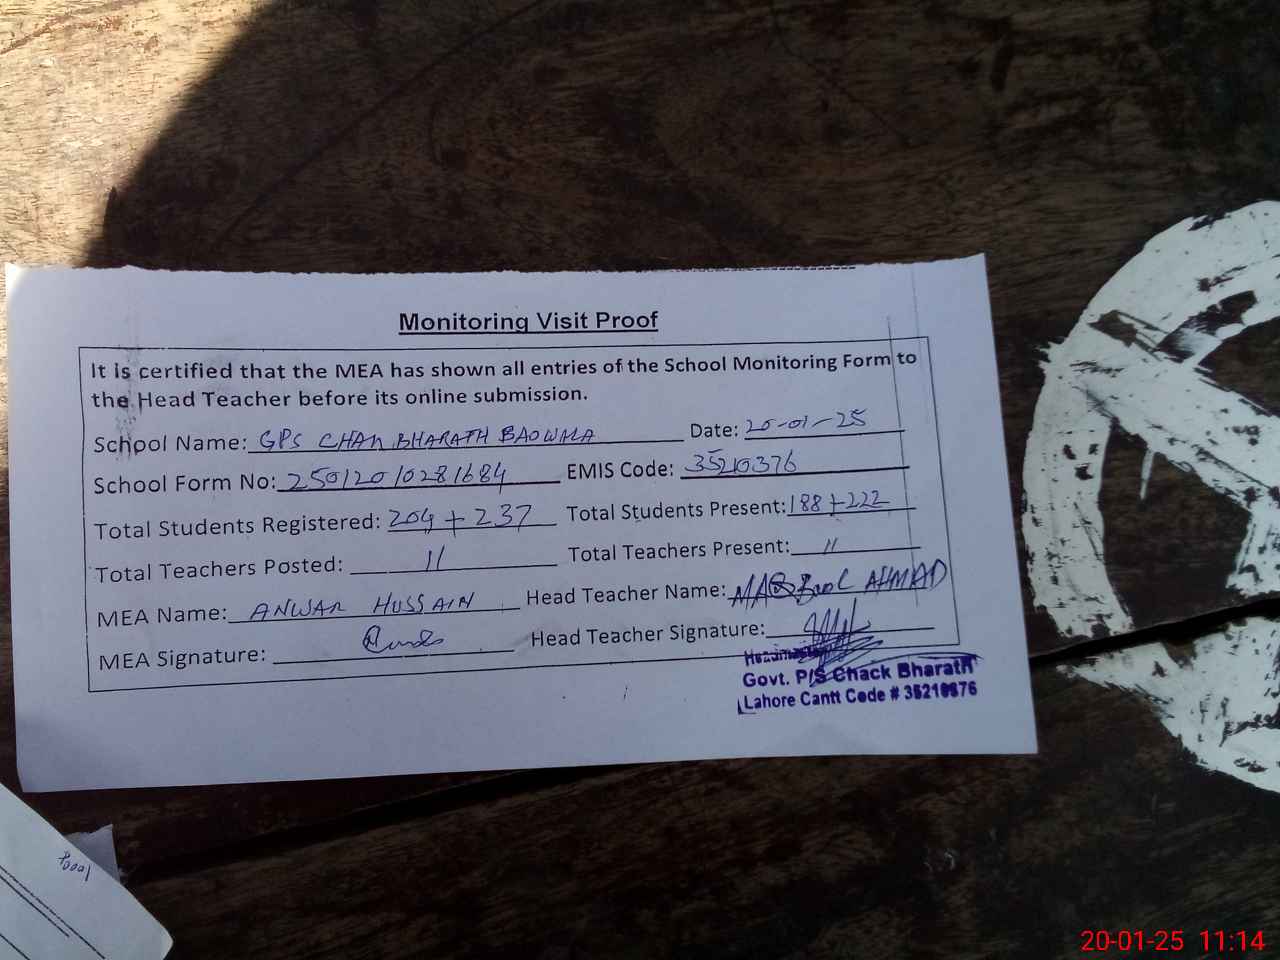 Monitoring Visit Proof
It is certified that the MEA has shown all entries of the School Monitoring Form to
the Head Teacher before its online submission.
School Name: GPS CHAK BHARATH BAOWALA Date: 20-01-25
School Form No: 25012010281684 EMIS Code: 35210376
Total Students Registered: 204 + 237 Total Students Present: 188 + 222
Total Teachers Posted: 11 Total Teachers Present: 11
MEA Name: ANWAR HUSSAIN Head Teacher Name: MAQBOOL AHMAD
MEA Signature: Head Teacher Signature:
Headmaster
Govt. P/S Chack Bharath
Lahore Cantt Code # 35210376
20-01-25 11:14